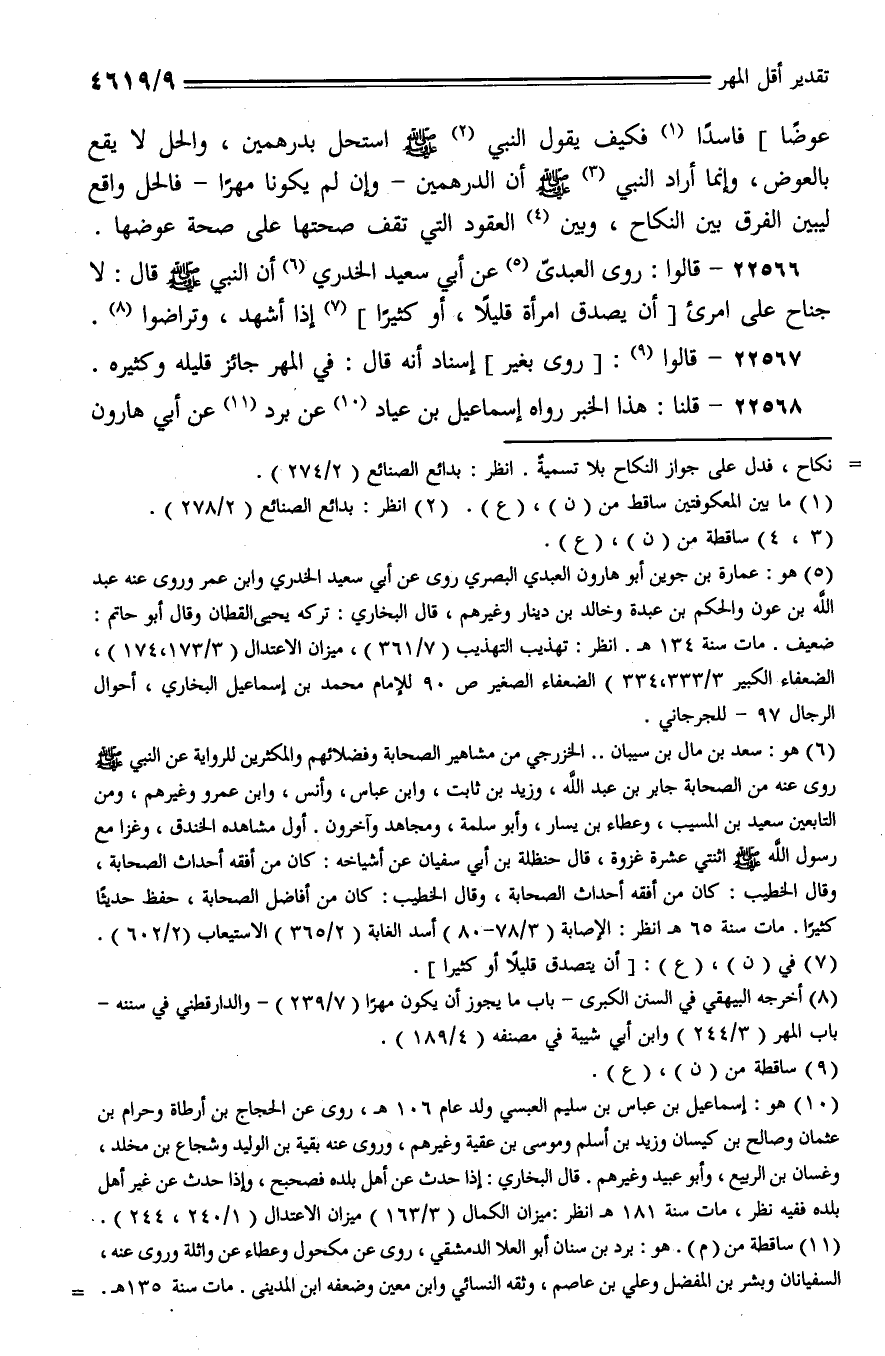 تقدير أقل المهر ٤٦١٩/٩
عوضًا ] فاسدًا (١) فكيف يقول النبي (٢) ﷺ استحل بدرهمين ، والحل لا يقع
بالعوض ، وإنما أراد النبي (٣) ﷺ أن الدرهمين – وإن لم يكونا مهرًا – فالحل واقع
ليبين الفرق بين النكاح ، وبين (٤) العقود التي تقف صحتها على صحة عوضها .
٢٢٥٦٦ – قالوا : روى العبديّ (٥) عن أبي سعيد الخدري (٦) أن النبي ﷺ قال : لا
جناح على امرئ [ أن يصدق امرأة قليلًا ، أو كثيرًا ] (٧) إذا أشهد ، وتراضوا (٨) .
٢٢٥٦٧ – قالوا (٩) : [ روى بغير ] إسناد أنه قال : في المهر جائز قليله وكثيره .
٢٢٥٦٨ – قلنا : هذا الخبر رواه إسماعيل بن عياد (١٠) عن برد (١١) عن أبي هارون
= نكاح ، فدل على جواز النكاح بلا تسميةٌ . انظر : بدائع الصنائع ( ٢٧٤/٢ ) .
(١) ما بين المعكوفتين ساقط من ( ن ) ، ( ع ) . (٢) انظر : بدائع الصنائع ( ٢٧٨/٢ ) .
(٣ ، ٤) ساقطة من ( ن ) ، ( ع ) .
(٥) هو : عمارة بن جوين أبو هارون العبدي البصري روى عن أبي سعيد الخدري وابن عمر وروى عنه عبد
اللَّه بن عون والحكم بن عبدة وخالد بن دينار وغيرهم ، قال البخاري : تركه يحيى القطان وقال أبو حاتم :
ضعيف . مات سنة ١٣٤ هـ . انظر : تهذيب التهذيب ( ٣٦١/٧ ) ، ميزان الاعتدال ( ١٧٤،١٧٣/٣ ) ،
الضعفاء الكبير ٣٣٤،٣٣٣/٣ ) الضعفاء الصغير ص ٩٠ للإمام محمد بن إسماعيل البخاري ، أحوال
الرجال ٩٧ – للجرجاني .
(٦) هو : سعد بن مال بن سيبان .. الخزرجي من مشاهير الصحابة وفضلائهم والمكثرين للرواية عن النبي ﷺ
روى عنه من الصحابة جابر بن عبد اللَّه ، وزيد بن ثابت ، وابن عباس، وأنس ، وابن عمرو وغيرهم ، ومن
التابعين سعيد بن المسيب ، وعطاء بن يسار ، وأبو سلمة ، ومجاهد وآخرون . أول مشاهده الخندق ، وغزا مع
رسول اللَّه ﷺ اثنتي عشرة غزوة ، قال حنظلة بن أبي سفيان عن أشياخه : كان من أفقه أحداث الصحابة ،
وقال الخطيب : كان من أفقه أحداث الصحابة ، وقال الخطيب : كان من أفاضل الصحابة ، حفظ حديثًا
كثيرًا . مات سنة ٦٥ هـ انظر : الإصابة ( ٧٨/٣-٨٠ ) أسد الغابة ( ٣٦٥/٢ ) الاستيعاب (٦٠٢/٢ ) .
(٧) في ( ن ) ، ( ع ) : [ أن يتصدق قليلًا أو كثيرا ] .
(٨) أخرجه البيهقي في السنن الكبرى – باب ما يجوز أن يكون مهرًا ( ٢٣٩/٧ ) – والدارقطني في سننه –
باب المهر ( ٢٤٤/٣ ) وابن أبي شيبة في مصنفه ( ١٨٩/٤ ) .
(٩) ساقطة من ( ن ) ، ( ع ) .
(١٠) هو : إسماعيل بن عباس بن سليم العبسي ولد عام ١٠٦ هـ ، روى عن الحجاج بن أرطاة وحرام بن
عثمان وصالح بن كيسان وزيد بن أسلم وموسى بن عقبة وغيرهم ، وروى عنه بقية بن الوليد وشجاع بن مخلد ،
وغسان بن الربيع ، وأبو عبيد وغيرهم . قال البخاري : إذا حدث عن أهل بلده فصحيح ، وإذا حدث عن غير أهل
بلده ففيه نظر ، مات سنة ١٨١ هـ انظر :ميزان الكمال ( ١٦٣/٣ ) ميزان الاعتدال ( ٢٤٠/١ ، ٢٤٤ ) .
(١١) ساقطة من (م) . هو : برد بن سنان أبو العلا الدمشقي ، روى عن مكحول وعطاء عن واثلة وروى عنه ،
السفيانان وبشر بن المفضل وعلي بن عاصم ، وثقه النسائي وابن معين وضعفه ابن المديني . مات سنة ١٣٥هـ . =